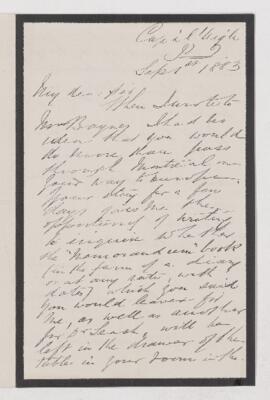 Cap à l'Aigle
P. Q.
Sept 1st 1883
My dear Sir
When I wrote to
Mrs Baynes I had no
idea that you would
do more than pass
through Montreal on
your way to Europe.
Your stay for a few
days gives me the
opportunity of writing
to enquire whether
the "Memorandum" book
(in the form of a diary
or at any rate, with
dates) which you said
you would leave for
me, as well as another
for Dr Leach will be
left in the drawer of the
table in your room in the